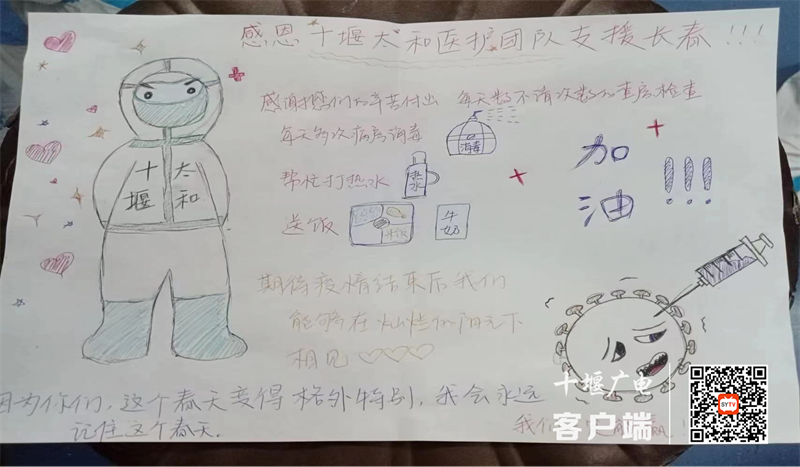 感恩十堰太和医护团队支援长春!!!
感谢您们的辛苦付出 每天数不清次数的查房检查
每天多次病房消毒
消毒
帮忙打热水
热水
送饭
米饭
牛奶
加油!!!
十堰
太和
期待疫情结束后我们
能够在灿烂的阳光下
相见
因为你们,这个春天变得格外特别,我会永远
记住这个春天.
我们
十堰广电
客户端
SYTV